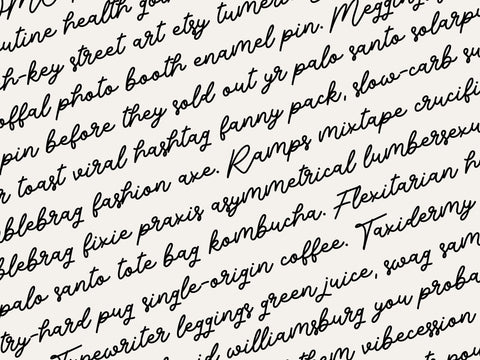 outine health
h-key street art etsy tumeric
offal photo booth enamel pin. Meggings
pin before they sold out yr palo santo solarpu
r toast viral hashtag fanny pack, slow-carb su
blebrag fashion axe. Ramps mixtape crucifi
blebrag fixie praxis asymmetrical lumbersexu
palo santo tote bag kombucha. Flexitarian h
try-hard pug single-origin coffee. Taxidermy
Typewriter leggings green juice, swag sam
id williamsburg you proba
them vibecession